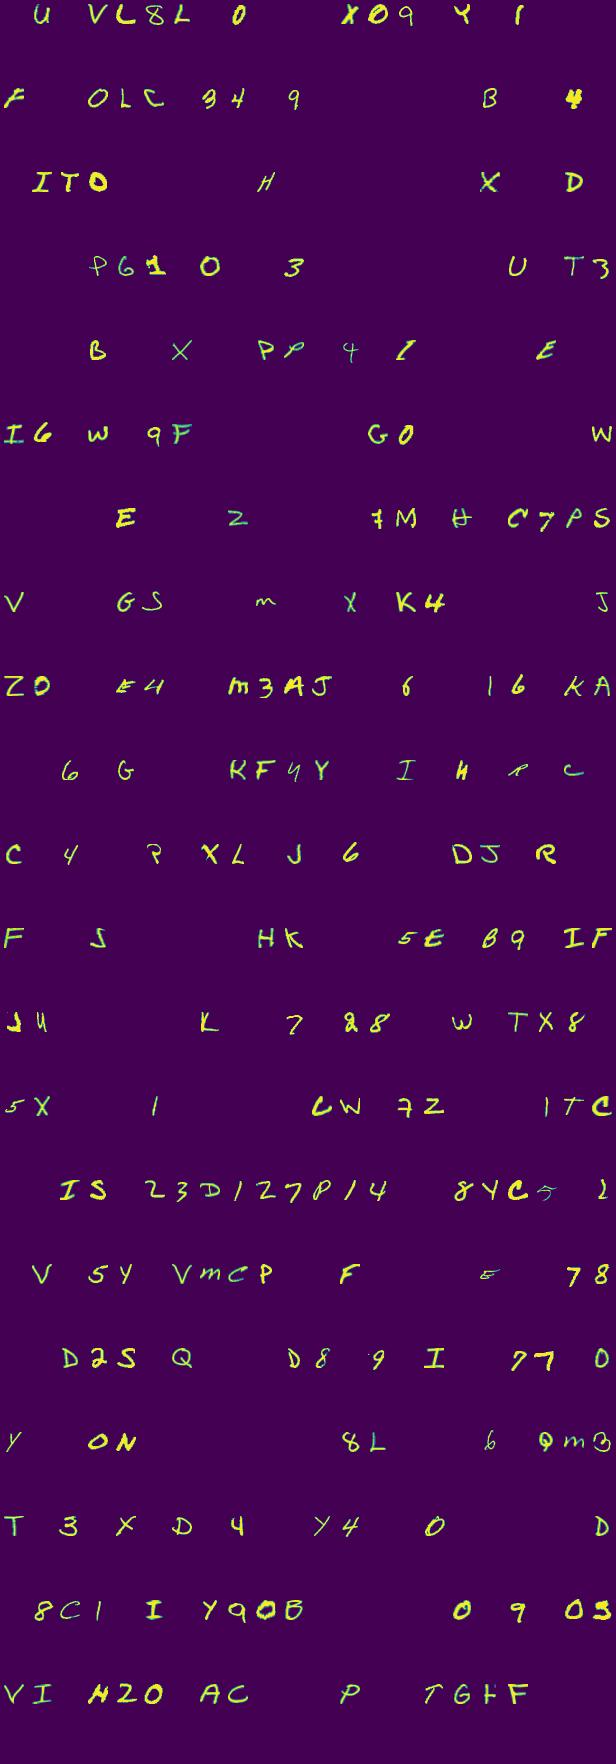 U VL8L 0 X09 Y 1
F OLC 34 9 B 4
ITO H X D
PG1 0 3 U T3
B X PP 4 I E
I6 W 9F G0 W
E Z 7M H C7PS
V GS m X K4 J
Z0 E4 m3AJ 6 16 KA
6 G KF4Y I H P C
C 4 P XL J 6 DJ R
F J HK 5E B9 IF
JU K 7 28 W TX8
5X 1 CW 7Z 1TC
IS 23D127P14 8YC5 2
V 5Y VmCP F E 78
D2S Q D8 9 I 77 0
Y ON 8L 6 Qm3
T 3 X D 4 Y4 0 D
8C1 I Y90B 0 9 05
VI N20 AC P TGHF